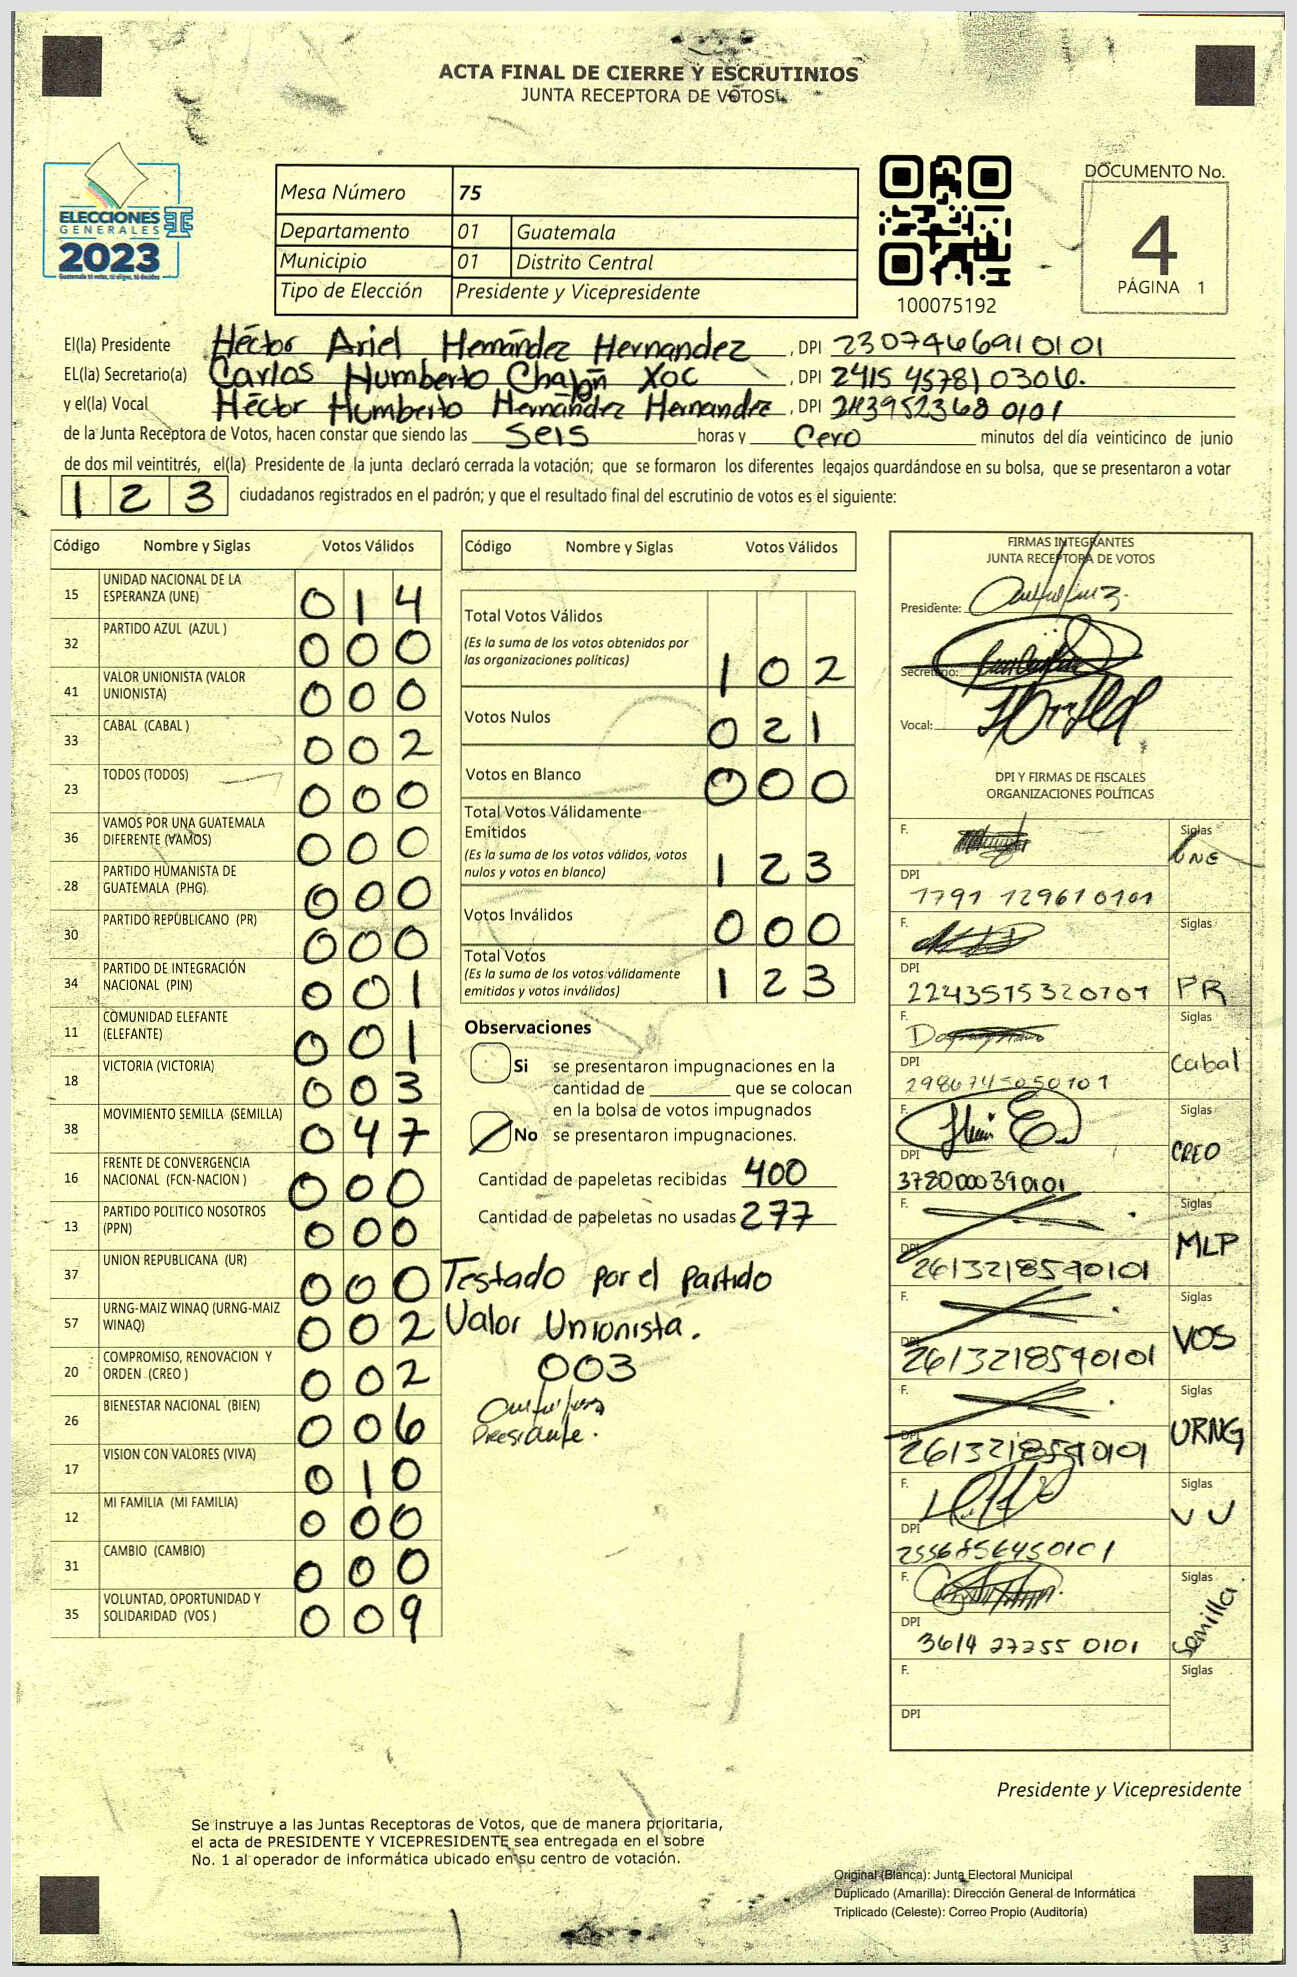 ACTA FINAL DE CIERRE Y ESCRUTINIOS
JUNTA RECEPTORA DE VOTOS
ELECCIONES
GENERALES
2023
Mesa Número 75
Departamento 01 Guatemala
Municipio 01 Distrito Central
Tipo de Elección Presidente y Vicepresidente
100075192
DOCUMENTO No.
4
PÁGINA 1
El(la) Presidente Héctor Ariel Hernández Hernandez , DPI 2307466910101
EL(la) Secretario(a) Carlos Humberto Chajón Xoc , DPI 2415 457810306.
y el(la) Vocal Héctor Humberto Hernández Hernandez , DPI 2439523680101
de la Junta Receptora de Votos, hacen constar que siendo las seis horas y cero minutos del día veinticinco de junio
de dos mil veintitrés, el(la) Presidente de la junta declaró cerrada la votación; que se formaron los diferentes legajos quardándose en su bolsa, que se presentaron a votar
1 2 3 ciudadanos registrados en el padrón; y que el resultado final del escrutinio de votos es el siguiente:
Código Nombre y Siglas Votos Válidos
15 UNIDAD NACIONAL DE LA ESPERANZA (UNE) 0 1 4
32 PARTIDO AZUL (AZUL ) 0 0 0
41 VALOR UNIONISTA (VALOR UNIONISTA) 0 0 0
33 CABAL (CABAL ) 0 0 2
23 TODOS (TODOS) 0 0 0
36 VAMOS POR UNA GUATEMALA DIFERENTE (VAMOS) 0 0 0
28 PARTIDO HUMANISTA DE GUATEMALA (PHG) 0 0 0
30 PARTIDO REPUBLICANO (PR) 0 0 0
34 PARTIDO DE INTEGRACIÓN NACIONAL (PIN) 0 0 1
11 COMUNIDAD ELEFANTE (ELEFANTE) 0 0 1
18 VICTORIA (VICTORIA) 0 0 3
38 MOVIMIENTO SEMILLA (SEMILLA) 0 4 7
16 FRENTE DE CONVERGENCIA NACIONAL (FCN-NACION ) 0 0 0
13 PARTIDO POLITICO NOSOTROS (PPN) 0 0 0
37 UNION REPUBLICANA (UR) 0 0 0
57 URNG-MAIZ WINAQ (URNG-MAIZ WINAQ) 0 0 2
20 COMPROMISO, RENOVACION Y ORDEN (CREO ) 0 0 2
26 BIENESTAR NACIONAL (BIEN) 0 0 6
17 VISION CON VALORES (VIVA) 0 1 0
12 MI FAMILIA (MI FAMILIA) 0 0 0
31 CAMBIO (CAMBIO) 0 0 0
35 VOLUNTAD, OPORTUNIDAD Y SOLIDARIDAD (VOS ) 0 0 9
Código Nombre y Siglas Votos Válidos
Total Votos Válidos 1 0 2
(Es la suma de los votos obtenidos por
las organizaciones políticas)
Votos Nulos 0 2 1
Votos en Blanco 0 0 0
Total Votos Válidamente
Emitidos 1 2 3
(Es la suma de los votos válidos, votos
nulos y votos en blanco)
Votos Inválidos 0 0 0
Total Votos 1 2 3
(Es la suma de los votos válidamente
emitidos y votos inválidos)
Observaciones
Si se presentaron impugnaciones en la
cantidad de ________ que se colocan
en la bolsa de votos impugnados
No se presentaron impugnaciones.
Cantidad de papeletas recibidas 400
Cantidad de papeletas no usadas 277
Testado por el partido
Valor Unionista.
003
Presidente.
FIRMAS INTEGRANTES
JUNTA RECEPTORA DE VOTOS
Presidente:
Secretario:
Vocal:
DPI Y FIRMAS DE FISCALES
ORGANIZACIONES POLÍTICAS
F. Siglas UNE
DPI 1791 129610101
F. Siglas PR
DPI 2243515320101
F. Siglas Cabal
DPI 2986745050101
F. Siglas CREO
DPI 3780000390101
F. Siglas MLP
DPI 2613218590101
F. Siglas VOS
DPI 2613218590101
F. Siglas URNG
DPI 2613218590101
F. Siglas VU
DPI 2556856450101
F. Siglas Semilla
DPI 3614 27255 0101
F. Siglas
DPI
Presidente y Vicepresidente
Se instruye a las Juntas Receptoras de Votos, que de manera prioritaria,
el acta de PRESIDENTE Y VICEPRESIDENTE sea entregada en el sobre
No. 1 al operador de informática ubicado en su centro de votación.
Original (Blanca): Junta Electoral Municipal
Duplicado (Amarilla): Dirección General de Informática
Triplicado (Celeste): Correo Propio (Auditoría)